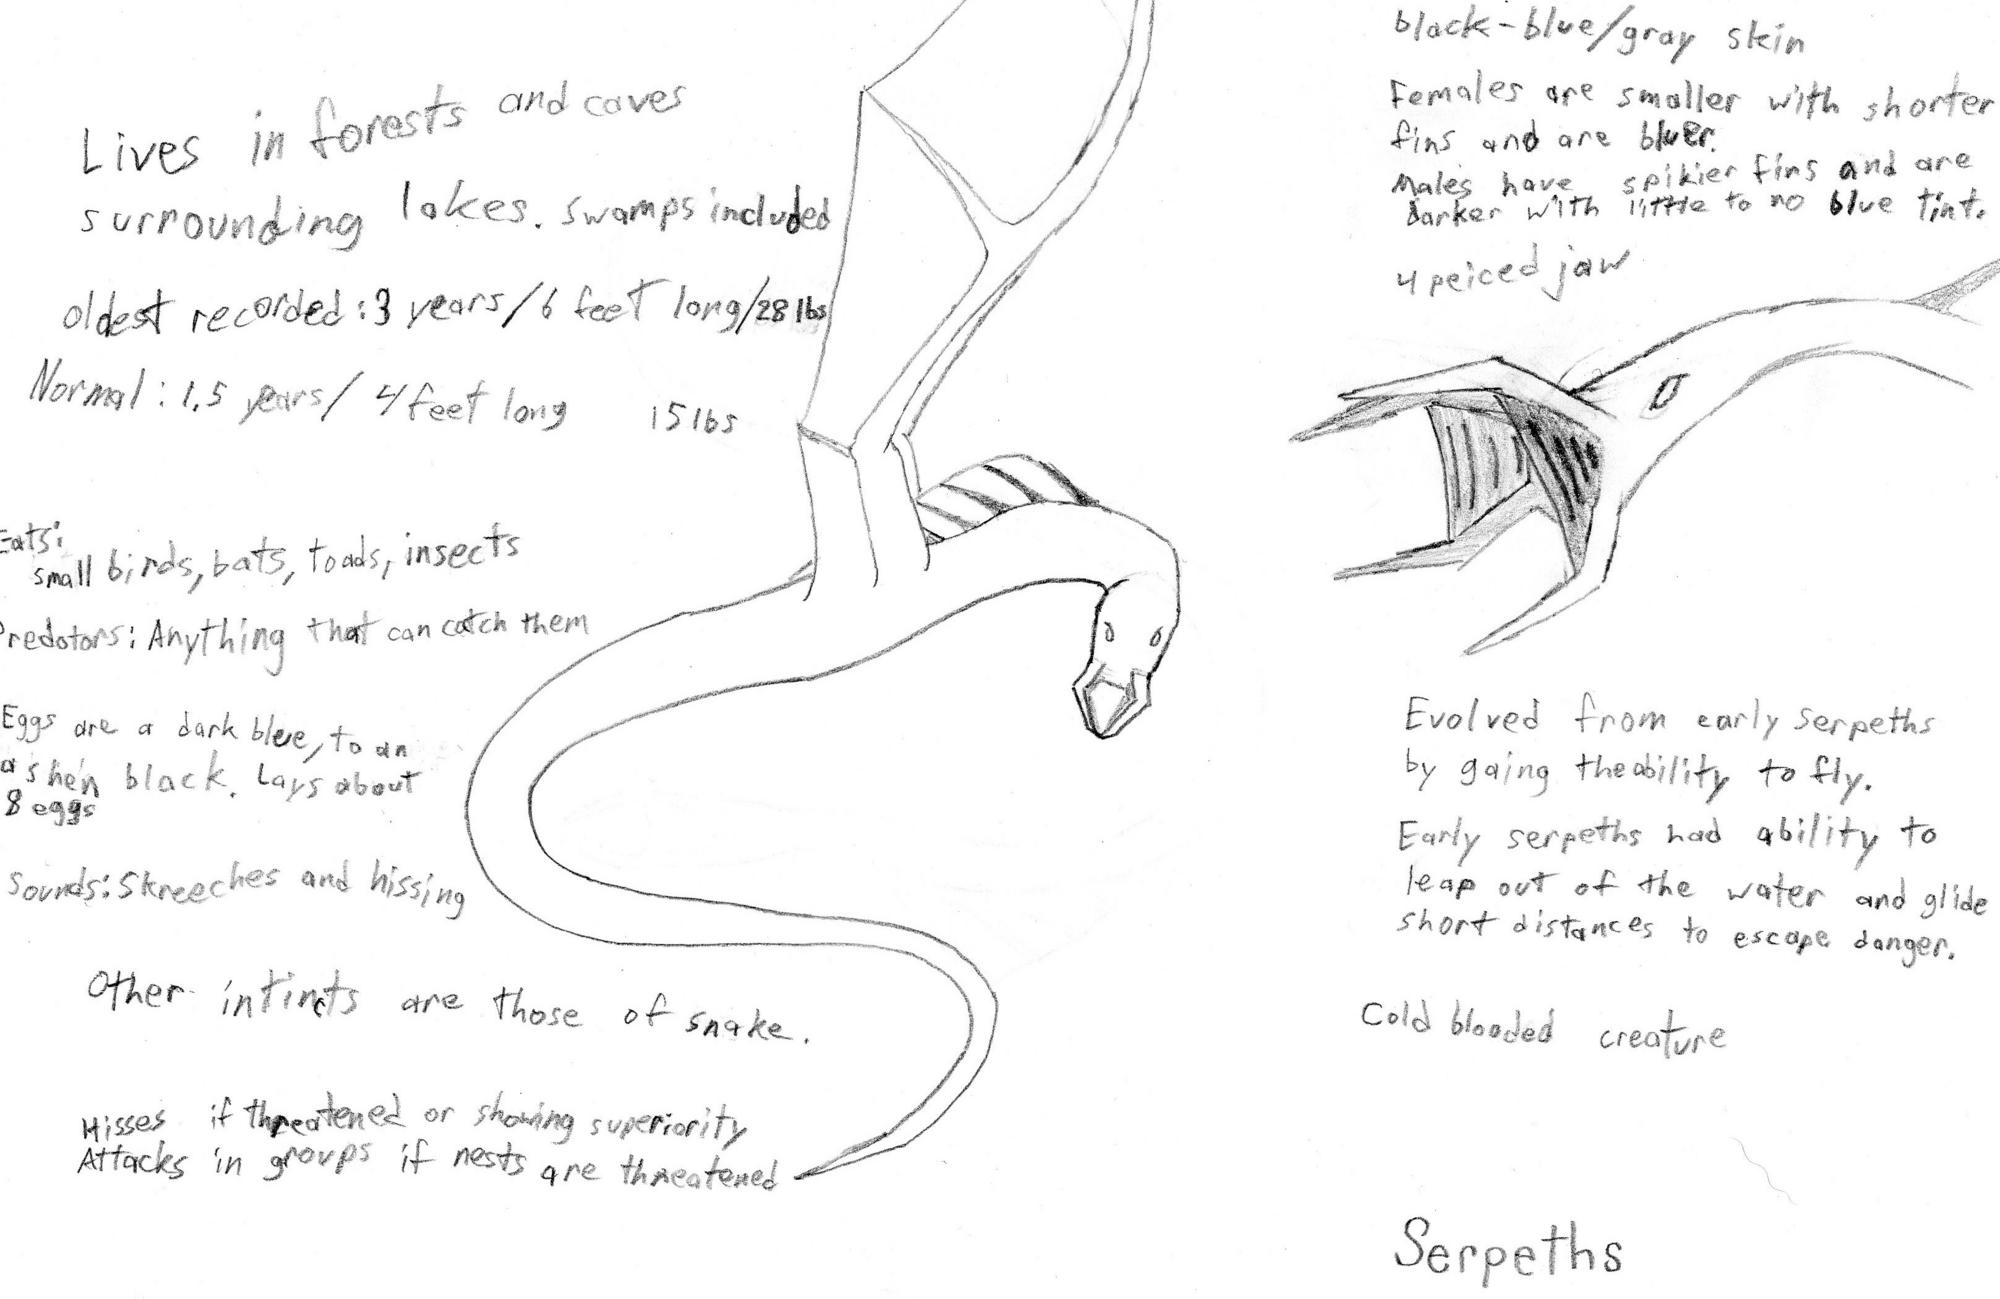 Lives in forests and caves
surrounding lakes. swamps included
oldest recorded: 3 years/6 feet long/28 lbs
Normal: 1.5 years/ 4 feet long 15 lbs
Eats:
small birds, bats, toads, insects
Predators: Anything that can catch them
Eggs are a dark blue, to an
ashen black. Lays about
8 eggs
Sounds: Skreeches and hissing
Other intincts are those of snake.
Hisses if threatened or showing superiority
Attacks in groups if nests are threatened
black-blue/gray skin
Females are smaller with shorter
fins and are bluer.
Males have spikier fins and are
darker with little to no blue tint.
4 peiced jaw
Evolved from early serpeths
by gaing the ability to fly.
Early serpeths had ability to
leap out of the water and glide
short distances to escape danger.
Cold blooded creature
Serpeths